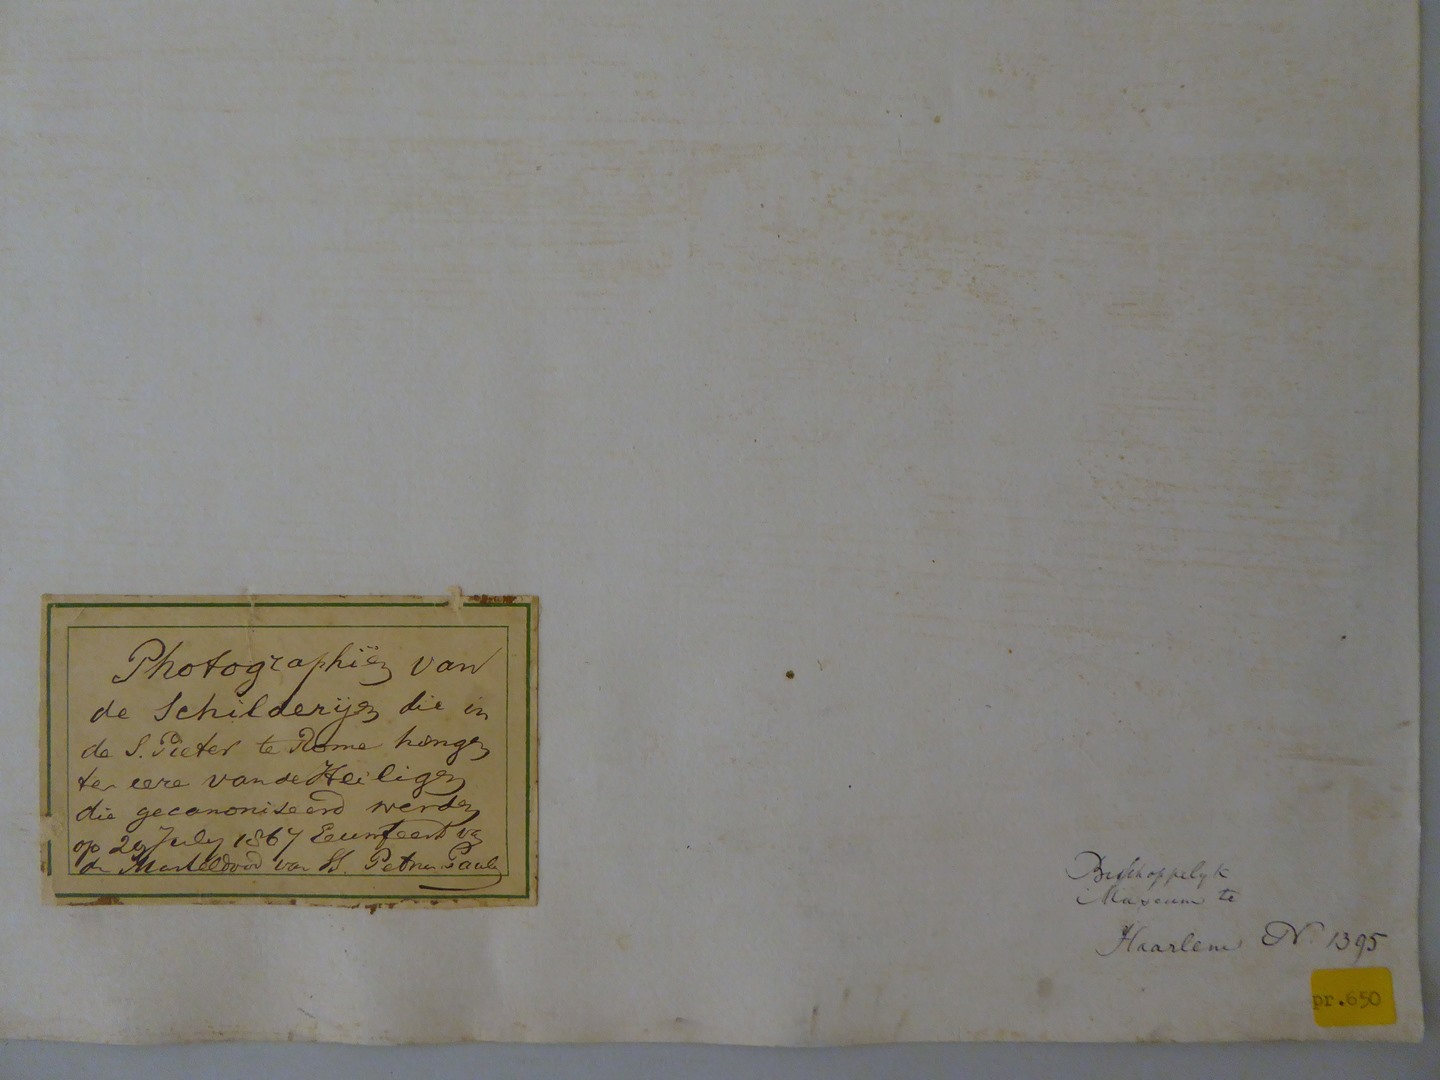 Photographiën van
de Schilderijen die in
de S. Pieter te Rome hingen
ter eere van de Heiligen
die gecanoniseerd werden
op 29 July 1867 Eeuwfeest van
den Marteldood van SS. Petrus Paulus
Bisschoppelyk
Museum te
Haarlem No 1395
pr.650